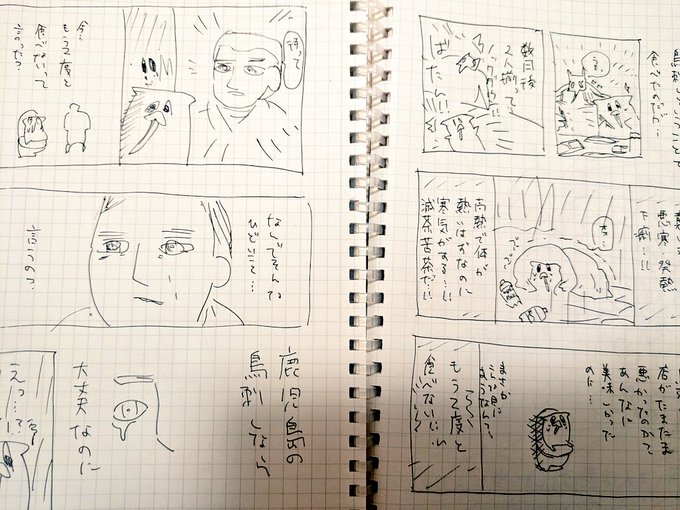 食べたのだが…
数日後
2人揃って
ばたん!!
悪寒 発熱
下痢…!!
高熱で体が
熱いはずなのに
寒気がする…!!
滅茶苦茶だ!!
店がたまたま
悪かったのかな
あんなに
美味しかった
のに…
まさか
こんな目に
あうなんて…
もう2度と
食べない…!!
待って
今…
もう2度と
食べないって
言った?
なんでそんな
ひどいこと…
言うの?
鹿児島の
鳥刺しなら
大丈夫なのに
えっ…